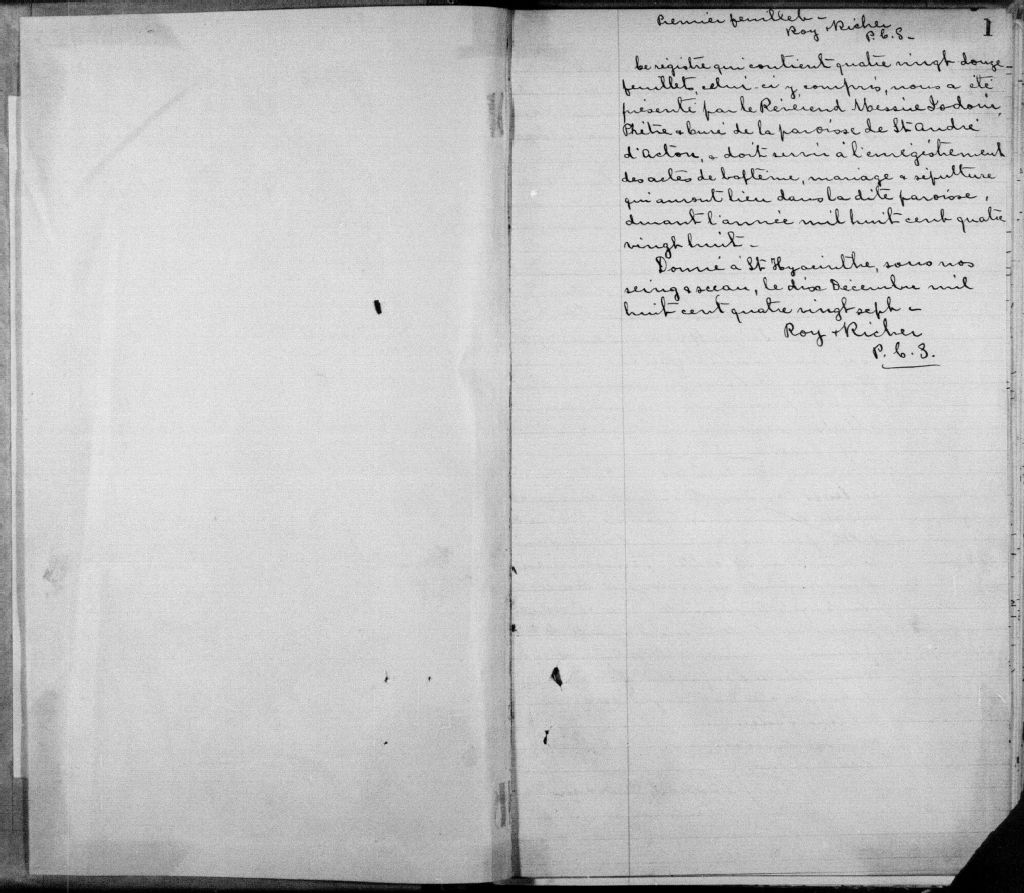 Premier feuillet -
Roy & Richer
P. C. S. -
1
Ce registre qui contient quatre vingt douze
feuillets, celui-ci y compris, nous a été
présenté par le Révérend Messire Dodoni,
Prêtre & Curé de la paroisse de St André
d'Acton, & doit servir à l'enregistrement
des actes de baptême, mariage & sépulture
qui auront lieu dans la dite paroisse,
durant l'année mil huit cent quatre
vingt huit -
Donné à St Hyacinthe, sous nos
seing & sceau, le dix Décembre mil
huit cent quatre vingt sept -
Roy & Richer
P. C. S.